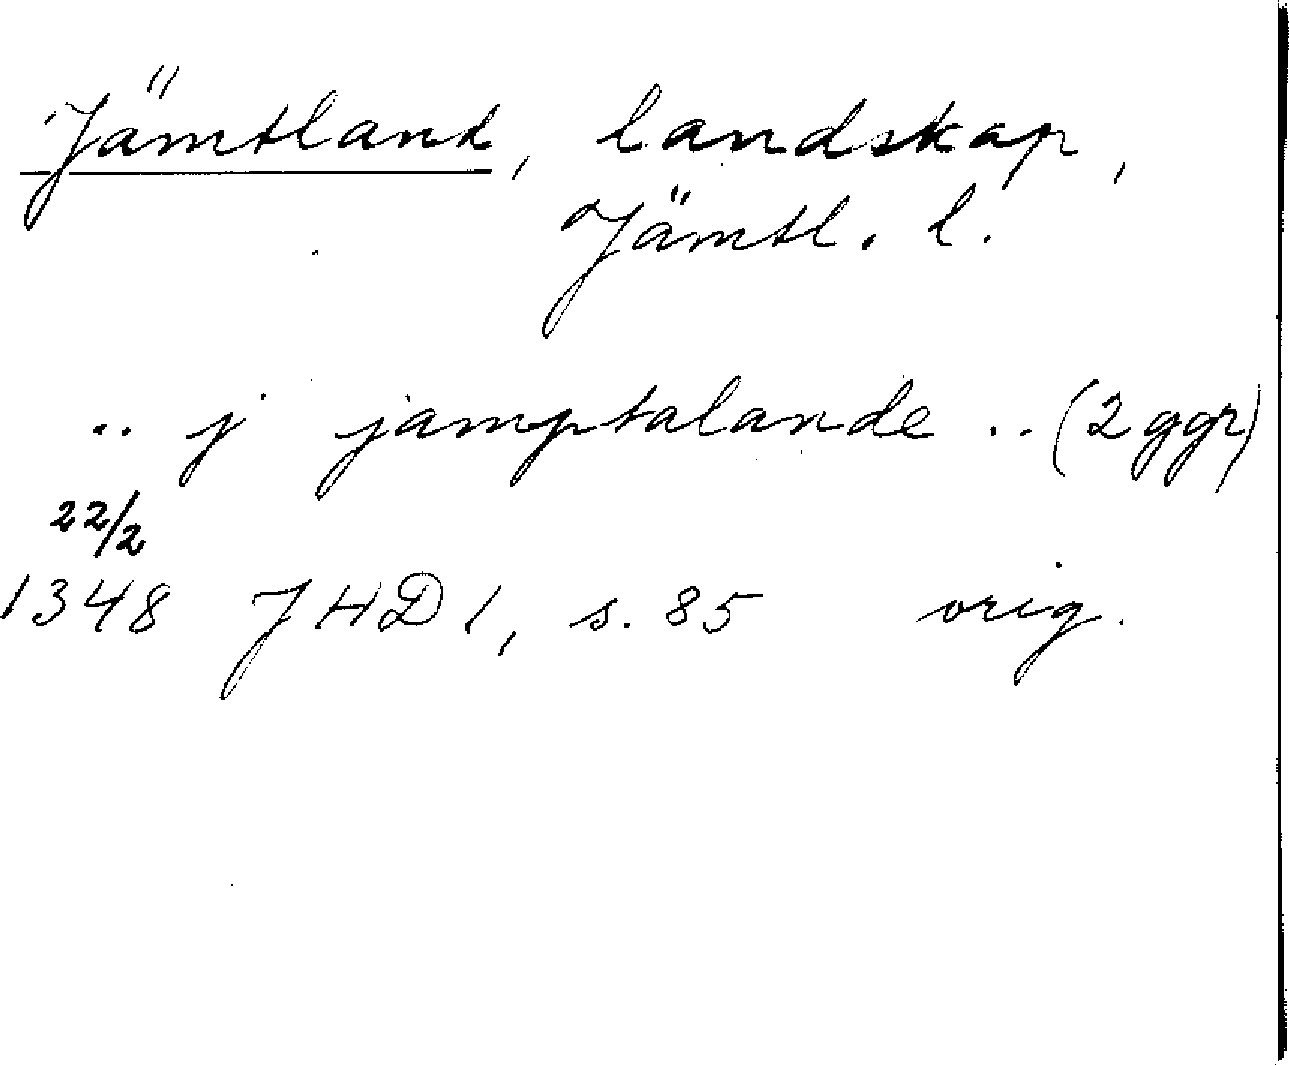 Jämtland, landskap,
Jämtl. l.
.. j jamptalande .. (2 ggr)
22/2
1348 JHD 1, s. 85 orig.